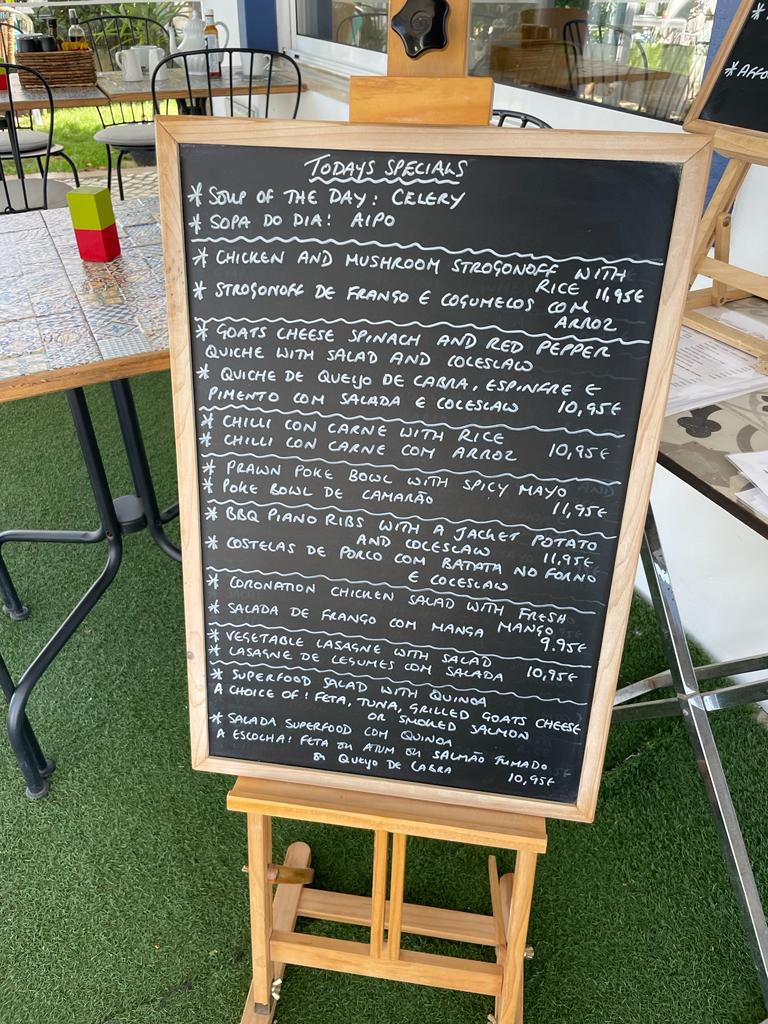 TODAYS SPECIALS
* SOUP OF THE DAY: CELERY
* SOPA DO DIA: AIPO
* CHICKEN AND MUSHROOM STROGONOFF WITH
RICE 11,95€
* STROGONOFF DE FRANGO E COGUMELOS COM
ARROZ
* GOATS CHEESE SPINACH AND RED PEPPER
QUICHE WITH SALAD AND COLESLAW
* QUICHE DE QUEIJO DE CABRA, ESPINFRE E
PIMENTO COM SALADA E COLESLAW 10,95€
* CHILLI CON CARNE WITH RICE
* CHILLI CON CARNE COM ARROZ 10,95€
* PRAWN POKE BOWL WITH SPICY MAYO
* POKE BOWL DE CAMARÃO 11,95€
* BBQ PIANO RIBS WITH A JACKET POTATO
AND COLESLAW 11,95€
* COSTELAS DE PORCO COM BATATA NO FORNO
E COLESLAW
* CORONATION CHICKEN SALAD WITH FRESH
MANGO
* SALADA DE FRANGO COM MANGA 9.95€
* VEGETABLE LASAGNE WITH SALAD
* LASAGNE DE LEGUMES COM SALADA 10,95€
* SUPERFOOD SALAD WITH QUINOA
A CHOICE OF: FETA, TUNA, GRILLED GOATS CHEESE
OR SMOKED SALMON
* SALADA SUPERFOOD COM QUINOA
A ESCOLHA: FETA OU ATUM OU SALMÃO FUMADO
OU QUEIJO DE CABRA 10,95€